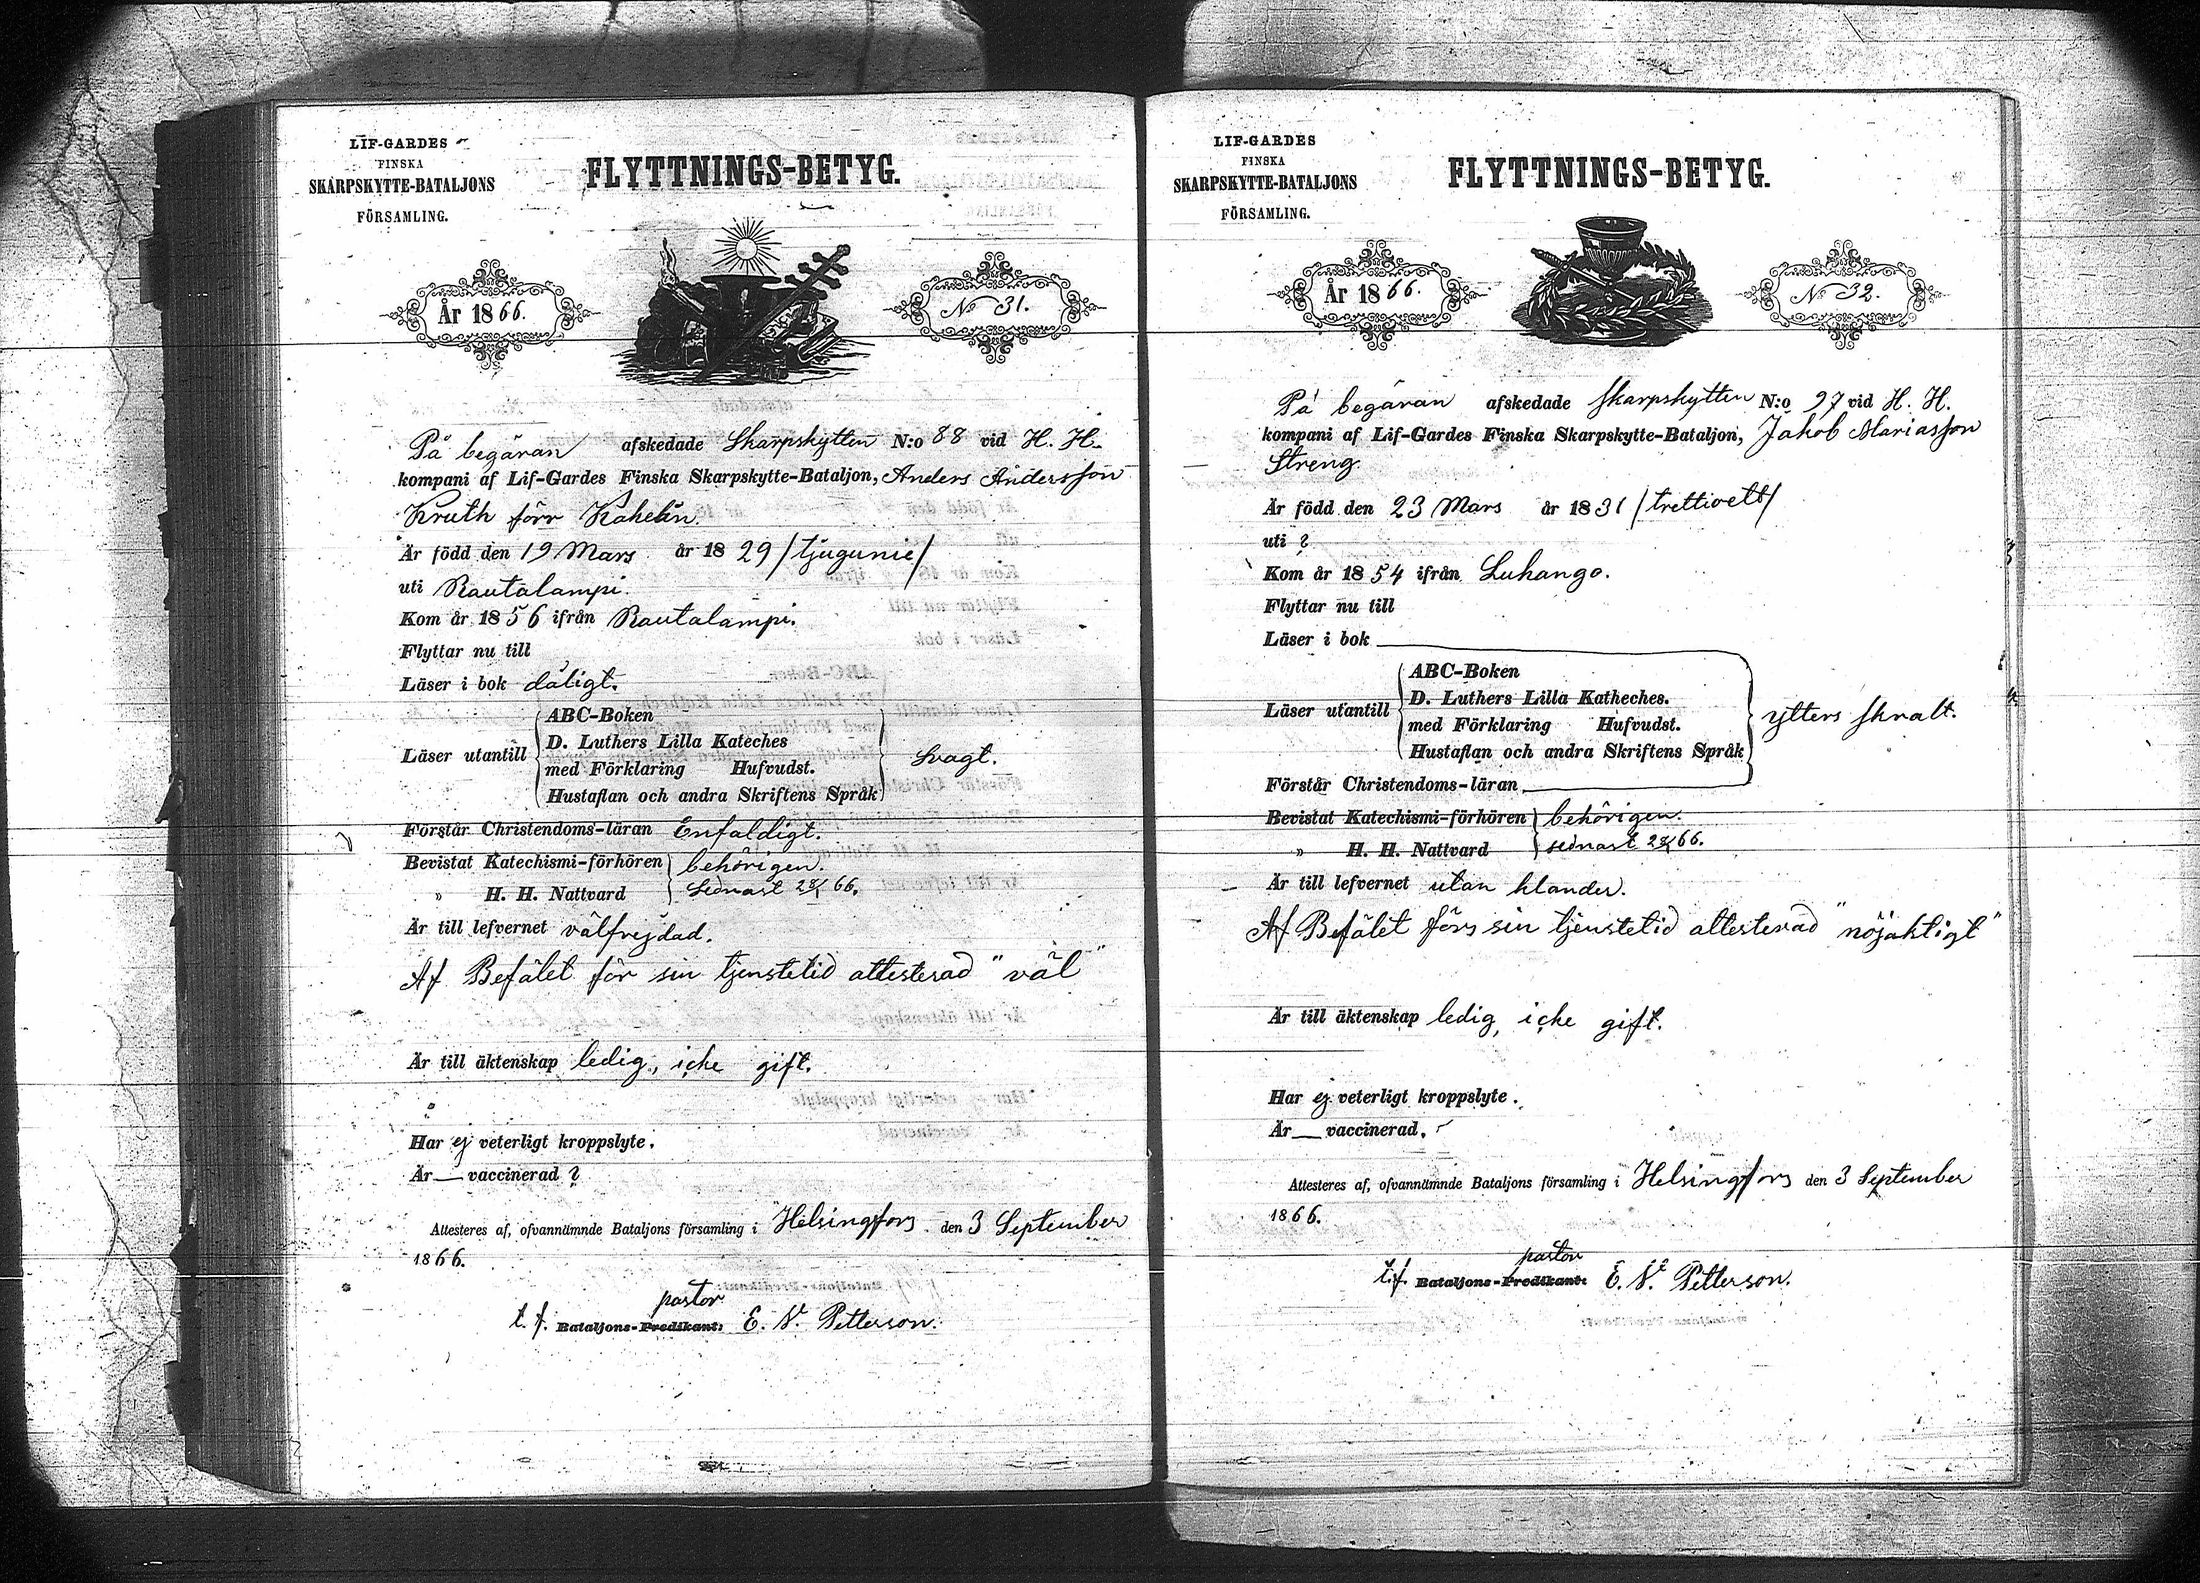 LIF-GARDES
FINSKA
SKARPSKYTTE-BATALJONS
FÖRSAMLING.
FLYTTNINGS-BETYG.
År 1866.
No 31.
På begäran afskedade Skarpskytten N:o 88 vid H. H.
kompani af Lif-Gardes Finska Skarpskytte-Bataljon, Anders Andersson
Kruth förr Kahelin.
Är född den 19 Mars år 1829 /tjugunie/
uti Rautalampi.
Kom år 1856 ifrån Rautalampi.
Flyttar nu till
Läser i bok dåligt.
Läser utantill
ABC-Boken
D. Luthers Lilla Kateches
med Förklaring Hufvudst.
Hustaflan och andra Skriftens Språk
Svagt.
Förstår Christendoms-läran Enfaldigt.
Bevistat Katechismi-förhören behörigen.
" H. H. Nattvard sednast 66.
Är till lefvernet välfrejdad.
Af Befälet för sin tjenstetid attesterad "väl"
Är till äktenskap ledig, icke gift.
Har ej veterligt kroppslyte.
Är — vaccinerad ?
Attesteres af, ofvannämnde Bataljons församling i Helsingfors den 3 September
1866.
pastor
t. f. Bataljons-Predikant: E. V. Petterson.
LIF-GARDES
FINSKA
SKARPSKYTTE-BATALJONS
FÖRSAMLING.
FLYTTNINGS-BETYG.
År 1866.
No 32.
På begäran afskedade Skarpskytten N:o 97 vid H. H.
kompani af Lif-Gardes Finska Skarpskytte-Bataljon, Jakob Mariasson
Streng.
Är född den 23 Mars år 1831 /trettioett/
uti ?
Kom år 1854 ifrån Luhango.
Flyttar nu till
Läser i bok
Läser utantill
ABC-Boken
D. Luthers Lilla Katheches.
med Förklaring Hufvudst.
Hustaflan och andra Skriftens Språk
ytters skralt.
Förstår Christendoms-läran
Bevistat Katechismi-förhören behörigen.
" H. H. Nattvard sednast 66.
Är till lefvernet utan klander.
Af Befälet förs sin tjenstetid attesterad "nöjaktigt"
Är till äktenskap ledig, icke gift.
Har ej veterligt kroppslyte.
Är — vaccinerad.
Attesteres af, ofvannämnde Bataljons församling i Helsingfors den 3 September
1866.
pastor
t.f. Bataljons-Predikant: E. V. Petterson.